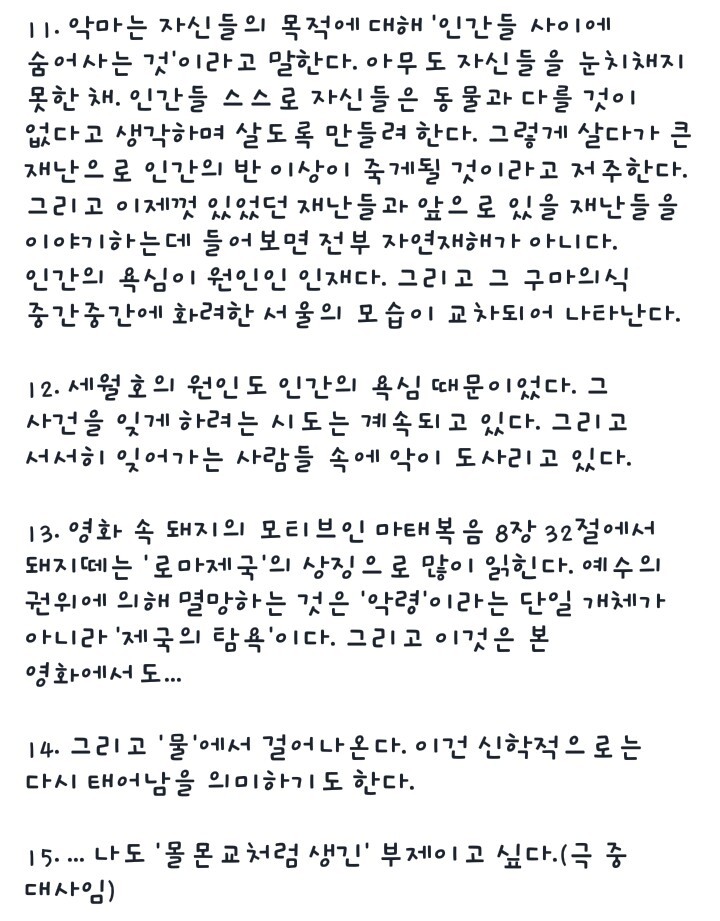 11. 악마는 자신들의 목적에 대해 '인간들 사이에
숨어사는 것'이라고 말한다. 아무도 자신들을 눈치채지
못한 채. 인간들 스스로 자신들은 동물과 다를 것이
없다고 생각하며 살도록 만들려 한다. 그렇게 살다가 큰
재난으로 인간의 반 이상이 죽게될 것이라고 저주한다.
그리고 이제껏 있었던 재난들과 앞으로 있을 재난들을
이야기하는데 들어보면 전부 자연재해가 아니다.
인간의 욕심이 원인인 인재다. 그리고 그 구마의식
중간중간에 화려한 서울의 모습이 교차되어 나타난다.
12. 세월호의 원인도 인간의 욕심 때문이었다. 그
사건을 잊게 하려는 시도는 계속되고 있다. 그리고
서서히 잊어가는 사람들 속에 악이 도사리고 있다.
13. 영화 속 돼지의 모티브인 마태복음 8장 32절에서
돼지떼는 '로마제국'의 상징으로 많이 읽힌다. 예수의
권위에 의해 멸망하는 것은 '악령'이라는 단일 개체가
아니라 '제국의 탐욕'이다. 그리고 이것은 본
영화에서도...
14. 그리고 '물'에서 걸어나온다. 이건 신학적으로는
다시 태어남을 의미하기도 한다.
15. ... 나도 '몰몬교처럼 생긴' 부제이고 싶다.(극 중
대사임)